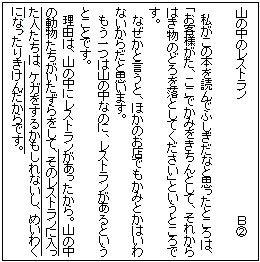 山の中のレストラン　B②
　私がこの本を読んでふしぎだなと思ったところは、
「お客様がた、ここでかみをきちんとして、それから
はき物のどろを落としてください」というところで
す。
　なぜかと言うと、ほかのお店でもかみとかはいわ
ないからだと思います。
　もう一つは山の中なのに、レストランがあるという
とことです。
　理由は、山の中にレストランがあったから。山の中
の動物たちがいたずらをして、そのレストランに入っ
た人たちは、ケガをするかもしれないし、めいわく
になったりきけんだからです。